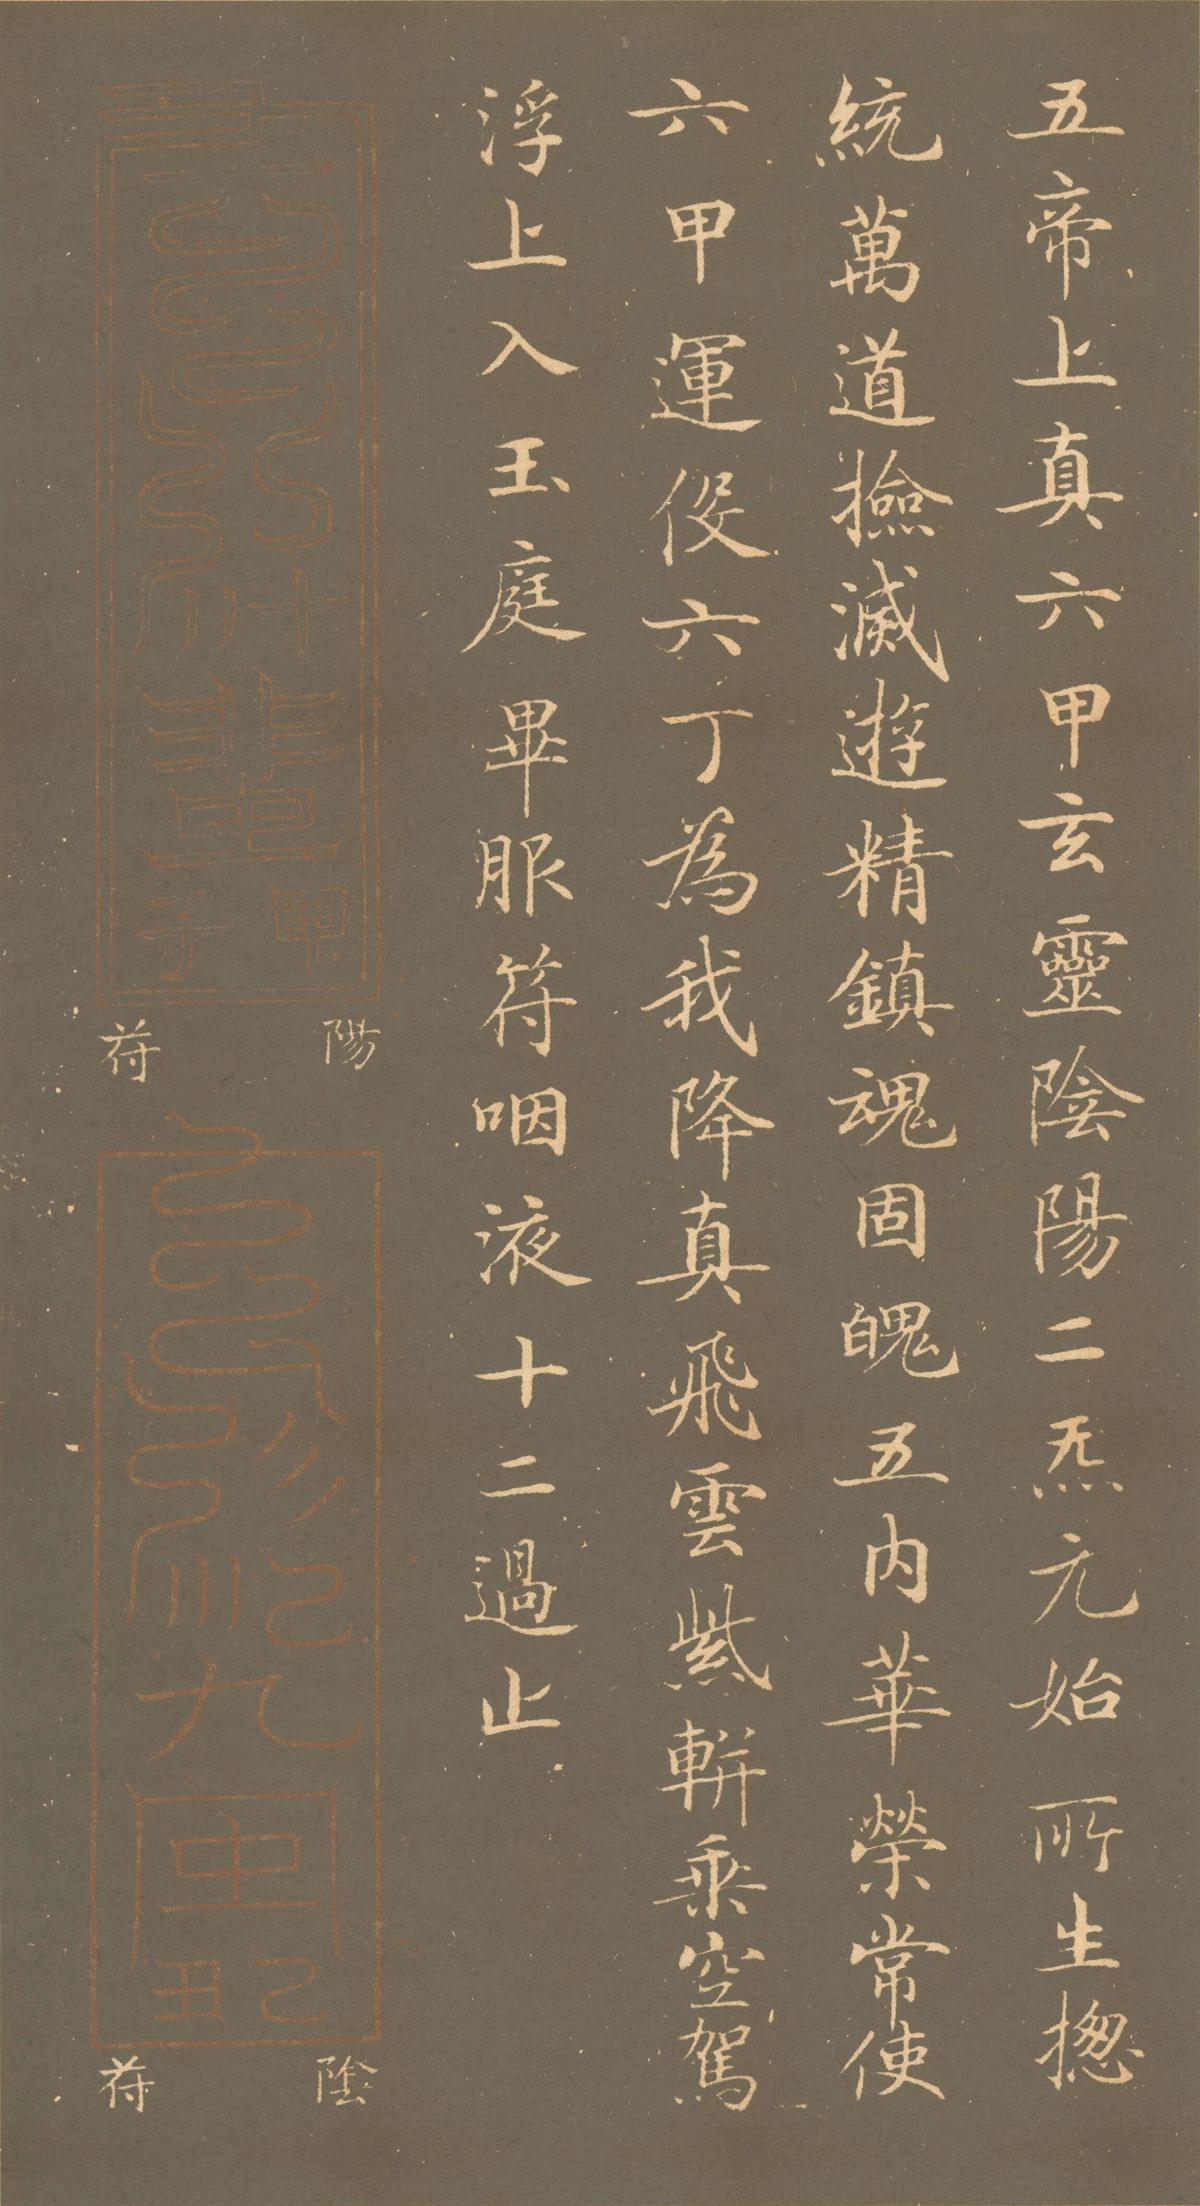 五帝上真六甲玄靈陰陽二炁元始所生摠
統萬道撿滅遊精鎮魂固魄五內華榮常使
六甲運役六丁為我降真飛雲紫軿乘空駕
浮上入玉庭畢服符咽液十二過止
甲子
陽符
九
己丑
陰符